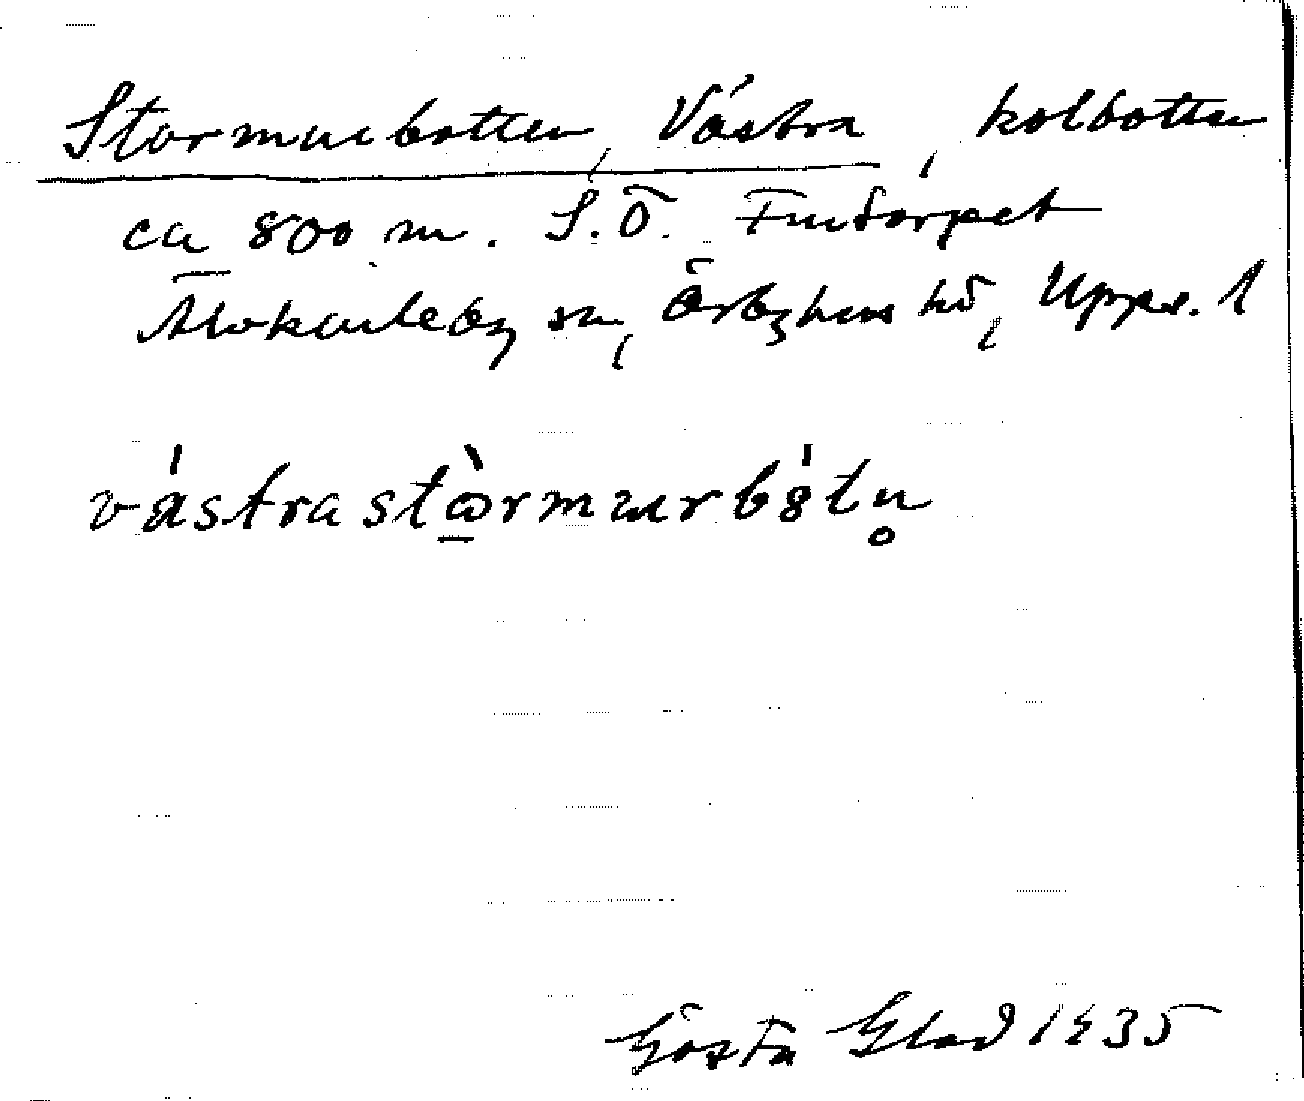 Stormurbotten, Västra, kolbotten
ca 800 m. S.Ö. Fintorpet
Älvkarleby sn, Örbyhus hd, Upps. l
västra stòrmurbót̥n
Gösta Glad 1935